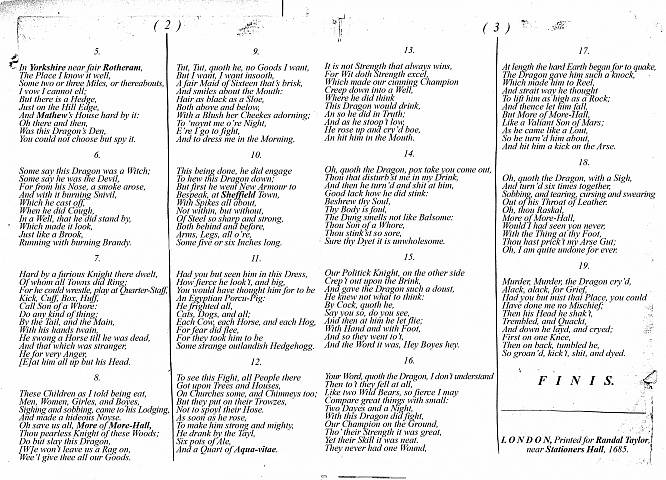 ( 2 )
5.
In Yorkshire near fair Rotheram,
The Place I know it well,
Some two or three Miles, or thereabouts,
I vow I cannot ell;
But there is a Hedge,
Just on the Hill Edge,
And Mathew's House hard by it:
Oh there and then,
Was this Dragon's Den,
You could not choose but spy it.
6.
Some say this Dragon was a Witch;
Some say he was the Devil,
For from his Nose, a smoke arose,
And with it burning Snivil,
Which he cast off,
When he did Cough,
In a Well, that he did stand by,
Which made it look,
Just like a Brook,
Running with burning Brandy.
7.
Hard by a furious Knight there dwelt,
Of whom all Towns did Ring;
For he could wrestle, play at Quarter-Staff,
Kick, Cuff, Box, Huff,
Call Son of a Whore:
Do any kind of thing;
By the Tail, and the Main,
With his hands twain,
He swong a Horse till he was dead,
And that which was stranger,
He for very Anger,
[E]at him all up but his Head.
8.
These Children as I told being eat,
Men, Women, Girles, and Boyes,
Sighing and sobbing, came to his Lodging,
And made a hideous Noyse.
Oh save us all, More of More-Hall,
Thou pearless Knight of these Woods;
Do but slay this Dragon,
[W]e won't leave us a Rag on,
Wee'l give thee all our Goods.
9.
Tut, Tut, quoth he, no Goods I want,
But I want, I want insooth,
A fair Maid of Sixteen that's brisk,
And smiles about the Mouth:
Hair as black as a Sloe,
Both above and below,
With a Blush her Cheekes adorning;
To 'noynt me o're Night,
E're I go to fight,
And to dress me in the Morning.
10.
This being done, he did engage
To hew this Dragon down;
But first he went New Armour to
Bespeak, at Sheffield Town,
With Spikes all about,
Not within, but without,
Of Steel so sharp and strong,
Both behind and before,
Arms, Legs, all o're,
Some five or six Inches long.
11.
Had you but seen him in this Dress,
How fierce he look't, and big,
You would have thought him for to be
An Egyptian Porcu-Pig:
He frighted all,
Cats, Dogs, and all;
Each Cow, each Horse, and each Hog,
For fear did flee,
For they took him to be
Some strange outlandish Hedgehogg.
12.
To see this Fight, all People there
Got upon Trees and Houses,
On Churches some, and Chimneys too;
But they put on their Trowzes,
Not to spoyl their Hose.
As soon as he rose,
To make him strong and mighty,
He drank by the Tayl,
Six pots of Ale,
And a Quart of Aqua-vitae.
( 3 )
13.
It is not Strength that always wins,
For Wit doth Strength excel,
Which made our cunning Champion
Creep down into a Well,
Where he did think
This Dragon would drink,
An so he did in Truth;
And as he stoop't low,
He rose up and cry'd boe,
An hit him in the Mouth.
14.
Oh, quoth the Dragon, pox take you come out,
Thou that disturb'st me in my Drink,
And then he turn'd and shit at him,
Good lack how he did stink:
Beshrew thy Soul,
Thy Body is foul,
The Dung smells not like Balsome:
Thou Son of a Whore,
Thou stink'st so sore,
Sure thy Dyet it is unwholesome.
15.
Our Polittick Knight, on the other side
Crep't out upon the Brink,
And gave the Dragon such a doust,
He knew not what to think:
By Cock, quoth he,
Say you so, do you see,
And then at him he let flie;
With Hand and with Foot,
And so they went to't,
And the Word it was, Hey Boyes hey.
16.
Your Word, quoth the Dragon, I don't understand
Then to't they fell at all,
Like two Wild Bears, so fierce I may
Compare great things with small:
Two Dayes and a Night,
With this Dragon did fight,
Our Champion on the Ground,
Tho' their Strength it was great,
Yet their Skill it was neat.
They never had one Wound,
17.
At length the hard Earth began for to quake,
The Dragon gave him such a knock,
Which made him to Reel,
And strait way he thought
To lift him as high as a Rock;
And thence let him fall,
But More of More-Hall,
Like a Valiant Son of Mars;
As he came like a Lout,
So he turn'd him about,
And hit him a kick on the Arse.
18.
Oh, quoth the Dragon, with a Sigh,
And turn'd six times together,
Sobbing, and tearing, cursing and swearing
Out of his Throat of Leather.
Oh, thou Raskal,
More of More-Hall,
Would I had seen you never,
With the Thing at thy Foot,
Thou hast prick't my Arse Gut;
Oh, I am quite undone for ever.
19.
Murder, Murder, the Dragon cry'd,
Alack, alack, for Grief,
Had you but mist that Place, you could
Have done me no Mischief;
Then his Head he shak't,
Trembled, and Quackt,
And down he layd, and cryed;
First on one Knee,
Then on back, tumbled he,
So groan'd, kick't, shit, and dyed.
F I N I S.
LONDON, Printed for Randal Taylor,
near Stationers Hall, 1685.